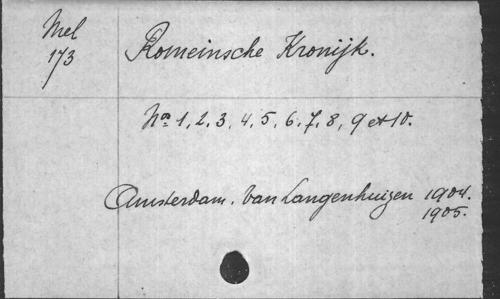 Mel
173
Romeinsche Kronijk.
Nos 1, 2, 3, 4, 5, 6, 7, 8, 9 et 10.
Amsterdam. Van Langenhuizen 1904.
1905.